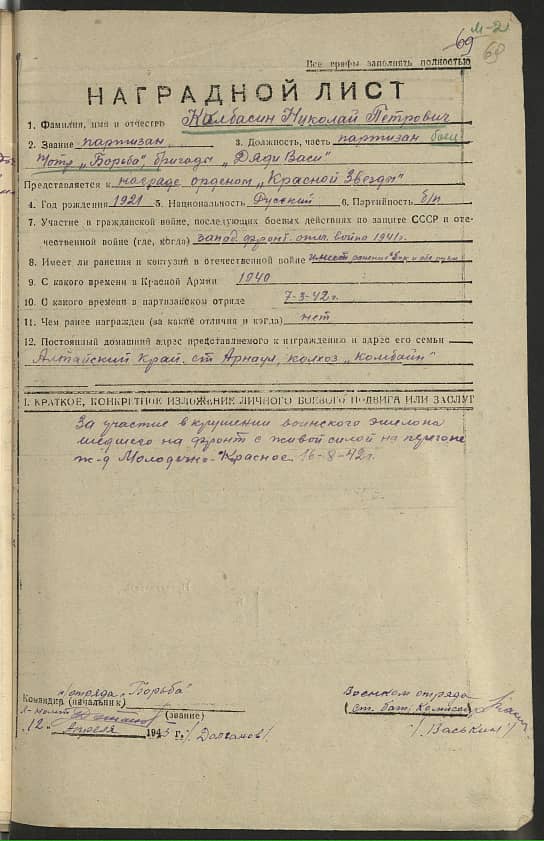 м-2
69
69
Все графы заполнять полностью
НАГРАДНОЙ ЛИСТ
1. Фамилия, имя и отчество Калбасин Николай Петрович
2. Звание партизан 3. Должность, часть партизан
"Борьба", бригады "Дяди Васи"
Представляется к награде орденом "Красной Звезды"
4. Год рождения 1921 5. Национальность Русский 6. Партийность б/п
7. Участие в гражданской войне, последующих боевых действиях по защите СССР и оте-
чественной войне (где, когда) запад. фронт. отеч. война 1941г.
8. Имеет ли ранения и контузии в отечественной войне имеет ранение
9. С какого времени в Красной Армии 1940
10. С какого времени в партизанском отряде 7-3-42г.
11. Чем ранее награжден (за какие отличия и когда) нет
12. Постоянный домашний адрес представляемого к награждению и адрес его семьи
Алтайский Край. ст Арнаул, колхоз "Комбайн"
I. КРАТКОЕ, КОНКРЕТНОЕ ИЗЛОЖЕНИЕ ЛИЧНОГО БОЕВОГО ПОДВИГА ИЛИ ЗАСЛУГ
За участие в крушении воинского эшелона
шедшего на фронт с живой силой на перегоне
ж-д Молодечно-Красное 16-8-42г.
отряда "Борьба"
Командир (начальник)
(звание)
"12" апреля 1943 г. /Долганов/
Военком отряда
(ст. бат. Комиссар)
/Васькин/